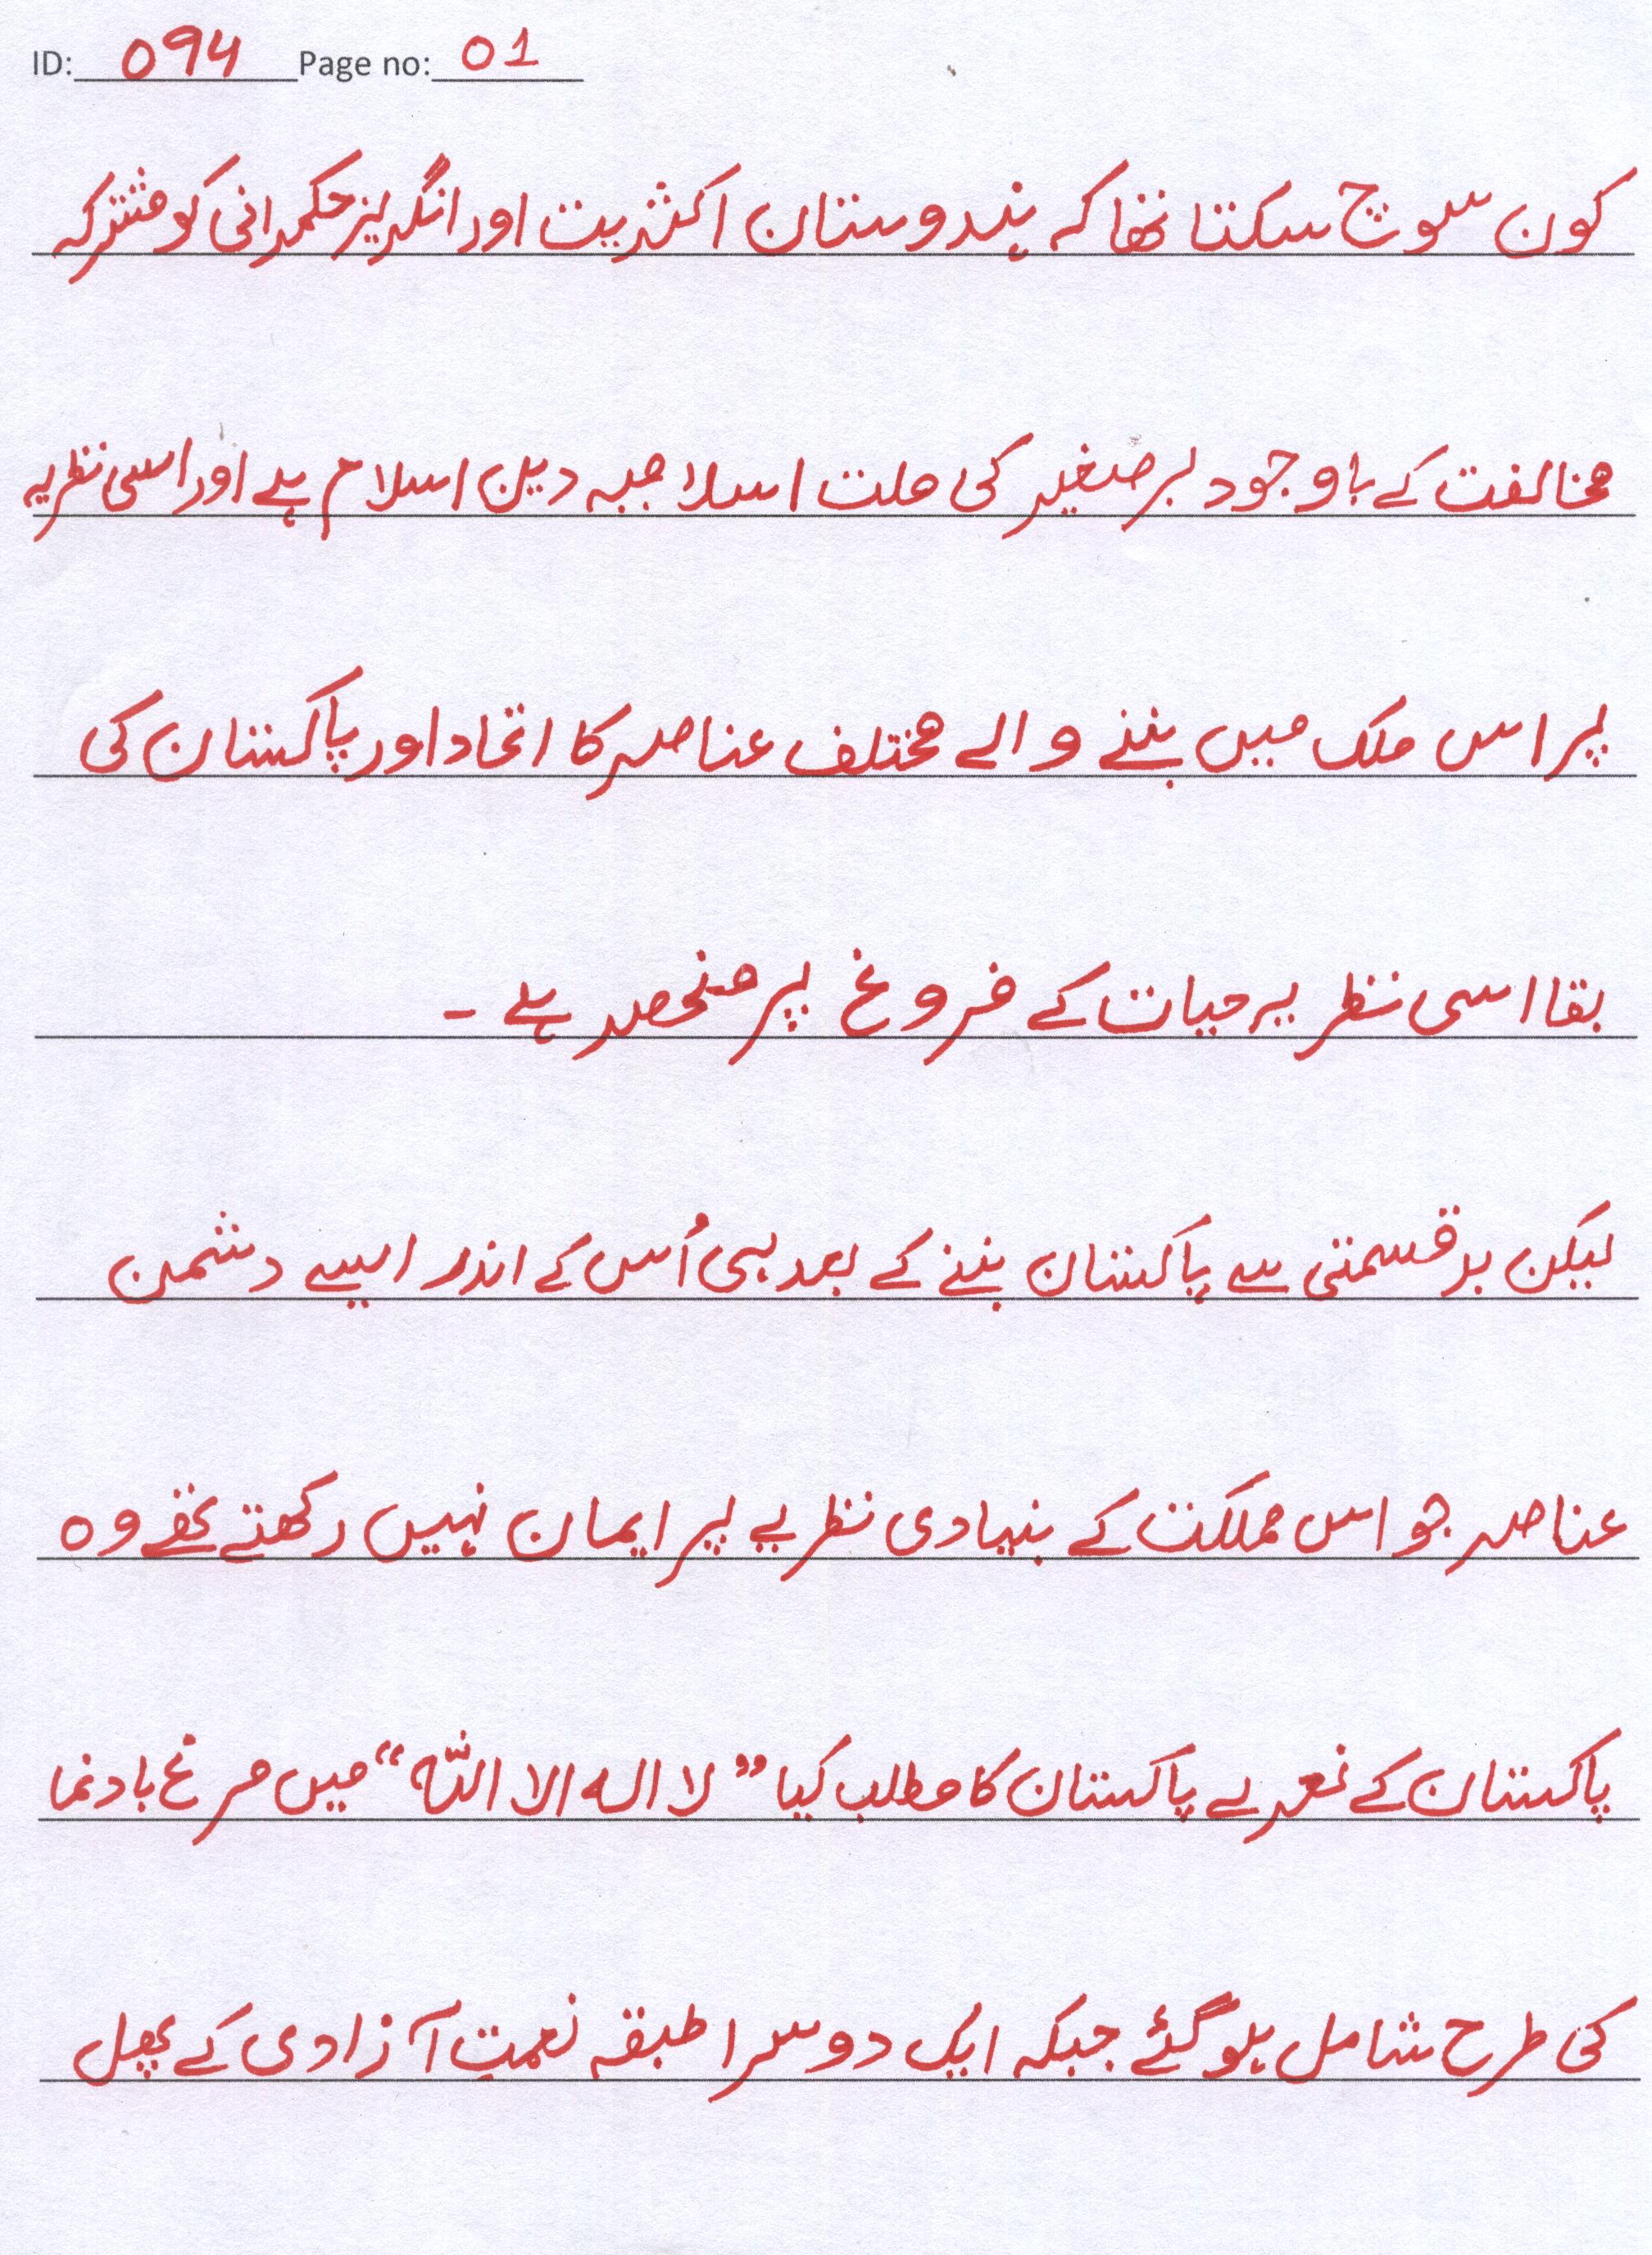 ID: 094 Page no: 01
کون سوچ سکتا تھا کہ ہندوستان اکثریت اور انگریز حکمرانی کو مشترکہ
مخالفت کے باوجود برصغیر کی ملت اسلامیہ دین اسلام ہے اور اسی نظریہ
پر اس ملک میں بننے والے مختلف عناصر کا اتحاد اور پاکستان کی
بقا اسی نظریہ حیات کے فروغ پر منحصر ہے ۔
لیکن بدقسمتی سے پاکستان بننے کے بعد ہی اُس کے اندر ایسے دشمن
عناصر جو اس مملکت کے بنیادی نظریے پر ایمان نہیں رکھتے تھے وہ
پاکستان کے نعرے پاکستان کا مطلب کیا ”لا الہ الا اللہ“ میں مرغ بادنما
کی طرح شامل ہو گئے جبکہ ایک دوسرا طبقہ نعمتِ آزادی کے پھل